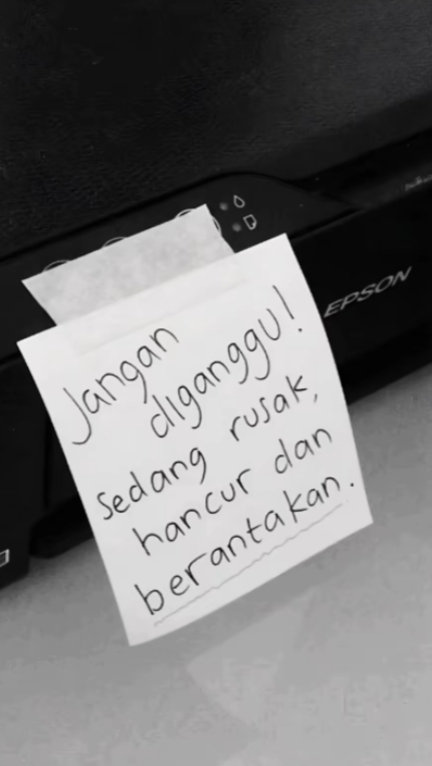 EPSON
Jangan
diganggu!
sedang rusak,
hancur dan
berantakan.